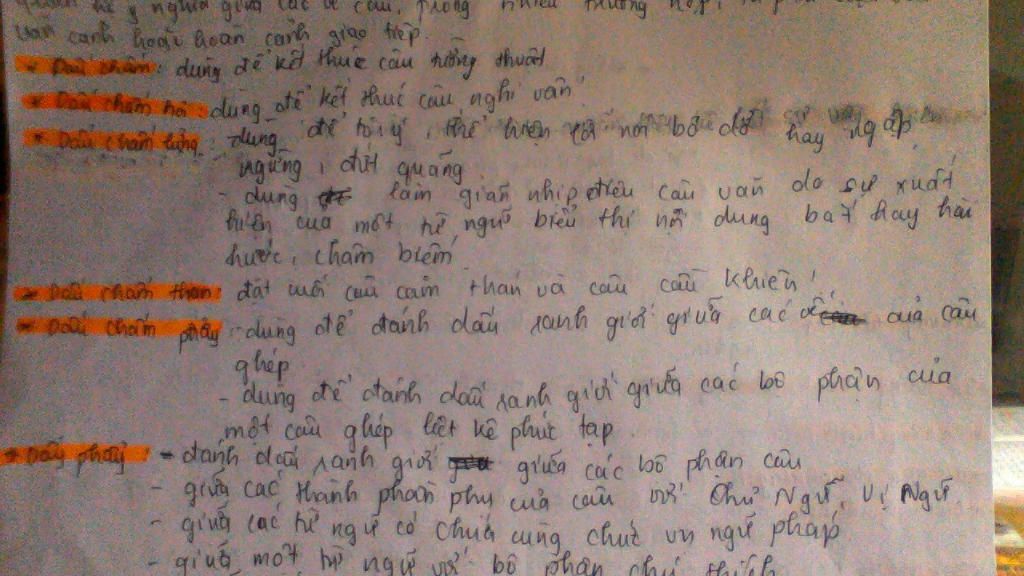 quan hệ ý nghĩa giữa các vế câu, trong nhiều trường hợp, ta phải
văn cảnh hoặc hoàn cảnh giao tiếp.
* Dấu chấm: dùng để kết thúc câu tường thuật
* Dấu chấm hỏi: dùng để kết thúc câu nghi vấn
* Dấu chấm lửng: - dùng để tỏ ý, thể hiện lời nói bỏ dở hay ngập
ngừng, đứt quãng
- dùng làm giãn nhịp điệu câu văn do sự xuất
hiện của một từ ngữ biểu thị nội dung bất hay hài
hước, châm biếm
* Dấu chấm than: đặt cuối câu cảm thán và câu cầu khiến
* Dấu chấm phẩy: - dùng để đánh dấu ranh giới giữa các vế của câu
ghép
- dùng để đánh dấu ranh giới giữa các bộ phận của
một câu ghép liệt kê phức tạp.
* Dấu phẩy: - đánh dấu ranh giới giữa các bộ phận câu
- giữa các thành phần phụ của câu với Chủ Ngữ, Vị Ngữ
- giữa các từ ngữ có chức cùng chức vụ ngữ pháp
- giữa một từ ngữ với bộ phận chú thích